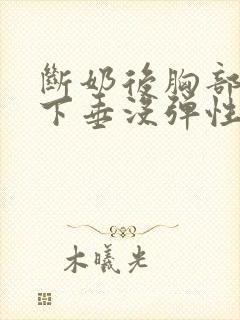 斷奶後胸部
下垂沒彈性
木曦光